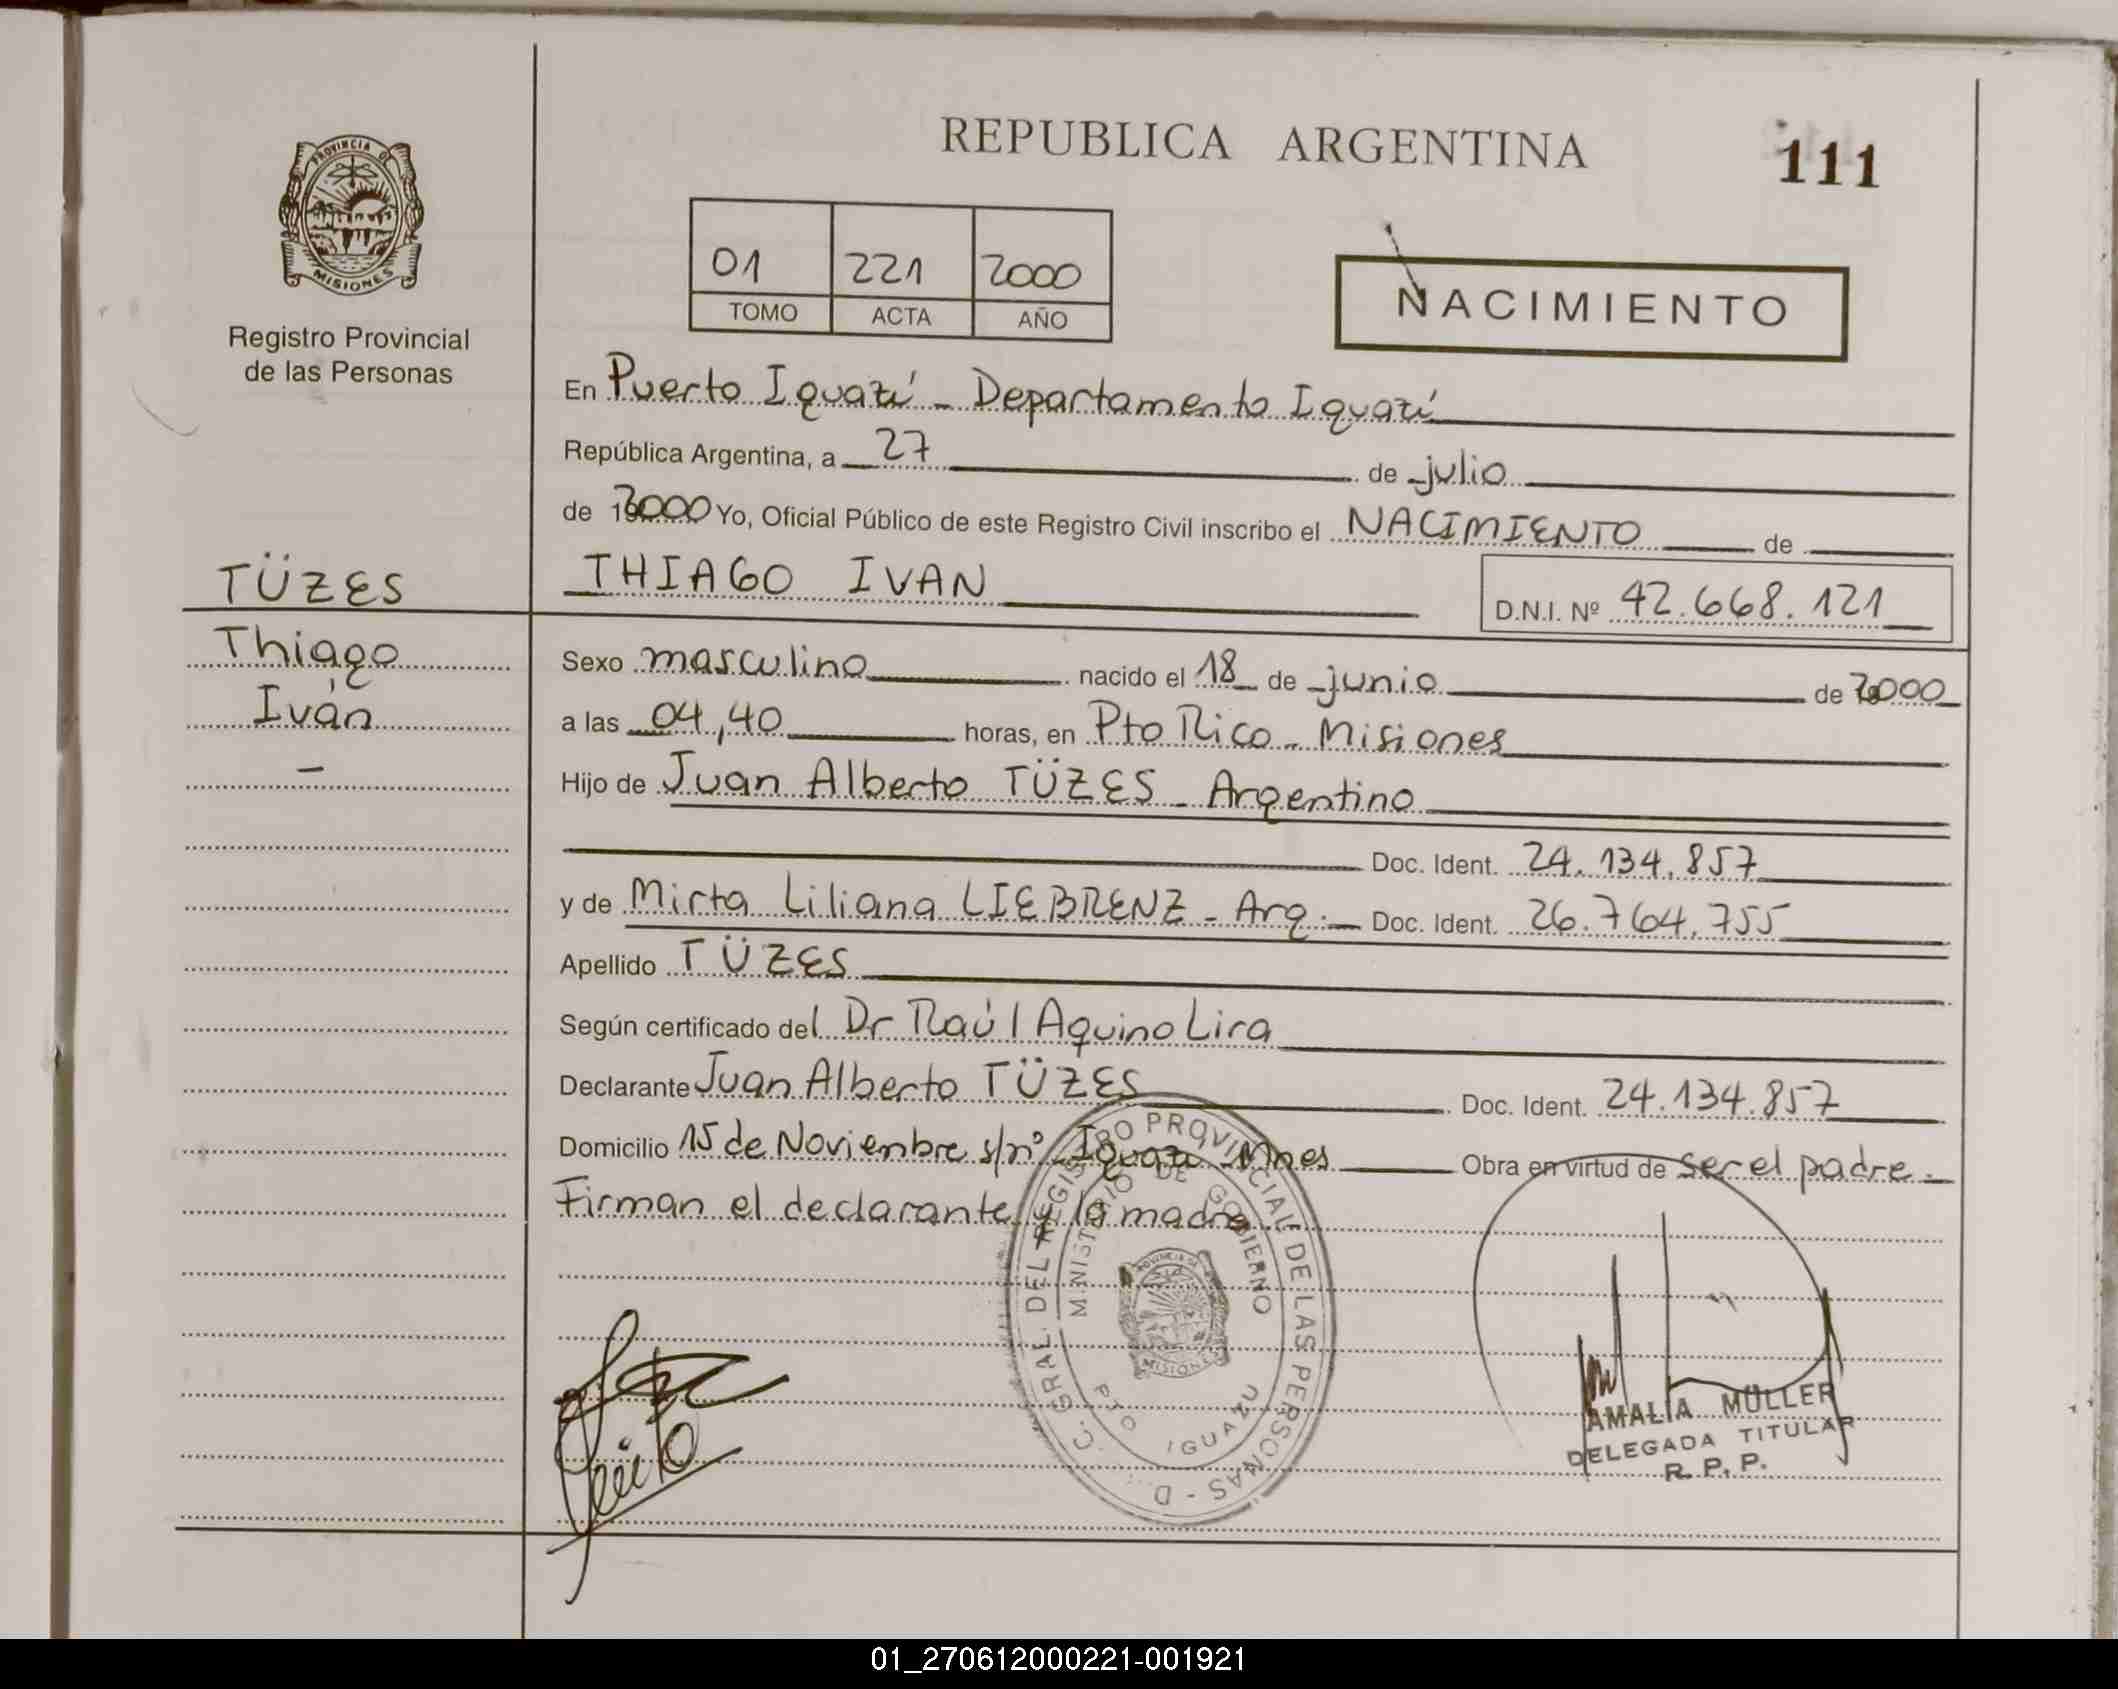 PROVINCIA DE
MISIONES
Registro Provincial
de las Personas
REPUBLICA ARGENTINA
111
01 221 2000
TOMO ACTA AÑO
NACIMIENTO
En Puerto Iguazú - Departamento Iguazú
República Argentina, a 27 de julio
de 2000 Yo, Oficial Público de este Registro Civil inscribo el NACIMIENTO de
TÜZES
Thiago
Iván
-
THIAGO IVAN
D.N.I. Nº 42.668.121
Sexo masculino nacido el 18 de junio de 2000
a las 04,40 horas, en Pto Rico - Misiones
Hijo de Juan Alberto TÜZES - Argentino
Doc. Ident. 24.134.857
y de Mirta Liliana LIEBRENZ - Arg. - Doc. Ident. 26.764.755
Apellido TÜZES
Según certificado del Dr Raúl Aquino Lira
Declarante Juan Alberto TÜZES Doc. Ident. 24.134.857
Domicilio 15 de Noviembre s/nº - Iguazú - Mnes Obra en virtud de ser el padre.
Firman el declarante y la madre
D. C. GRAL. DEL REGISTRO PROVINCIAL DE LAS PERSONAS -
MINISTERIO DE GOBIERNO
PROVINCIA DE
MISIONES
PTO IGUAZU
AMALIA MÜLLER
DELEGADA TITULAR
R. P. P.
01_270612000221-001921